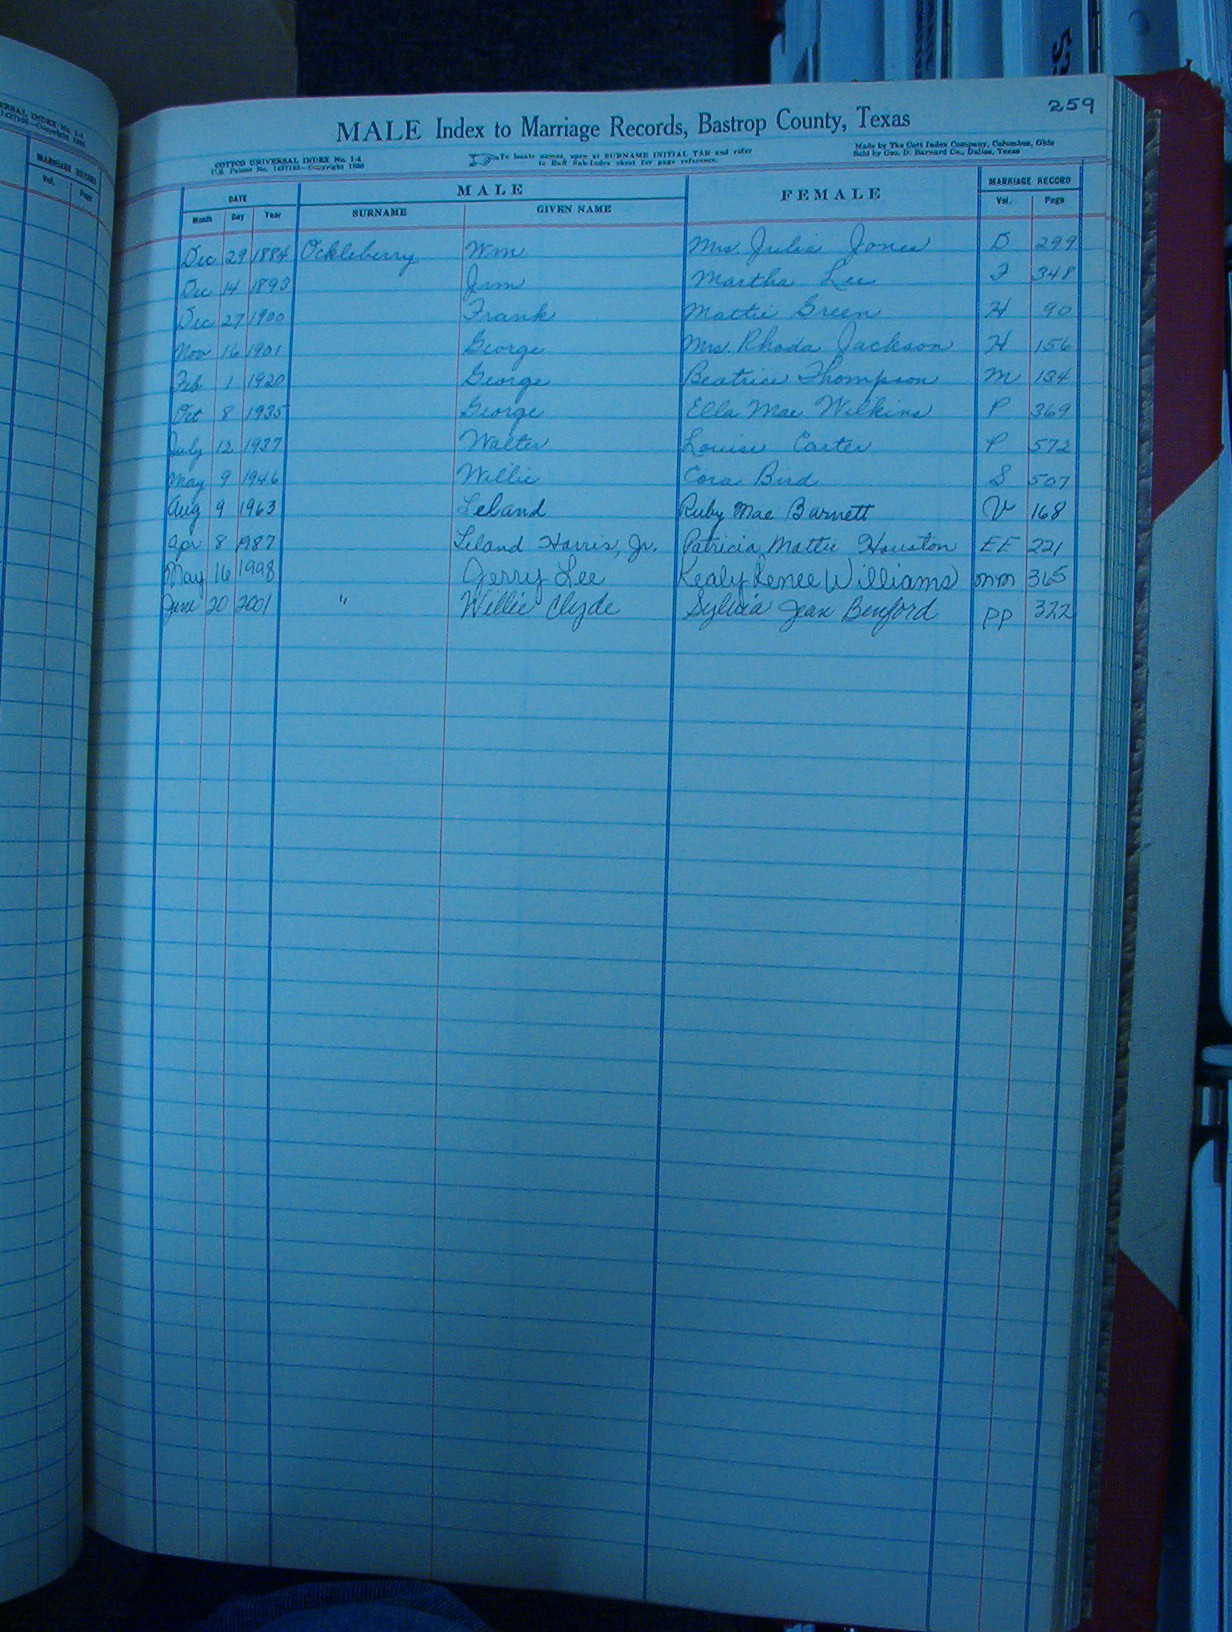 259
MALE Index to Marriage Records, Bastrop County, Texas
COTTCO UNIVERSAL INDEX No. 1-4
U.S. Patent No. Copyright
To locate names, open at SURNAME INITIAL TAB and refer
to Buff Sub-Index sheet for page reference.
Made by The Cott Index Company, Columbus, Ohio
Sold by Geo. D. Barnard Co., Dallas, Texas
DATE MALE FEMALE MARRIAGE RECORD
Month Day Year SURNAME GIVEN NAME Vol. Page
Dec 29 1884 Ockleberry Wm Mrs. Julia Jones D 299
Dec 14 1893 Jim Martha Lee 348
Dec 27 1900 Frank Mattie Green H 90
Nov 16 1901 George Mrs. Rhoda Jackson H 156
Feb 1 1920 George Beatrice Thompson M 134
Oct 8 1935 George Ella Mae Wilkins P 369
July 12 1937 Walter Louise Carter P 572
May 9 1946 Willie Cora Bird S 507
Aug 9 1963 Leland Ruby Mae Barnett V 168
Apr 8 1987 Leland Harris, Jr. Patricia Mattie Houston EE 221
May 16 1998 Jerry Lee Kealy Renee Williams mm 365
June 20 2001 " Willie Clyde Sylvia Jean Benford PP 322
MARRIAGE RECORD
Vol. Page